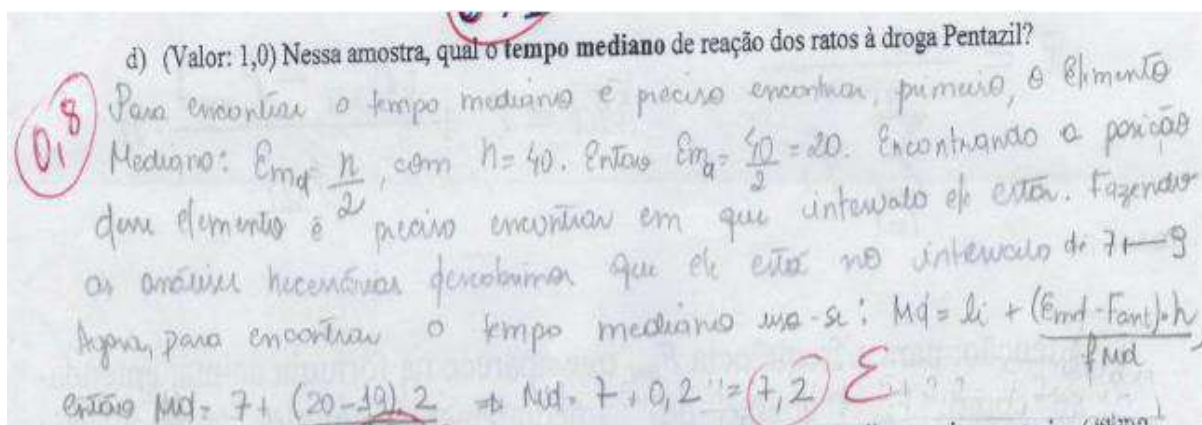 d) (Valor: 1,0) Nessa amostra, qual o tempo mediano de reação dos ratos à droga Pentazil?
0,8
Para encontrar o tempo mediano é preciso encontrar, primeiro, o Elemento
Mediano: Emd = n/2, com n = 40. Então Emd = 40/2 = 20. Encontrando a posição
desse elemento é preciso encontrar em que intervalo ele está. Fazendo
as análises necessárias descobrimos que ele está no intervalo de 7 ⊢ 9
Agora, para encontrar o tempo mediano usa-se: Md = li + (Emd - Fant) · h / fMd
então Md = 7 + (20 - 19) . 2 ⇒ Md = 7 + 0,2 = 7,2